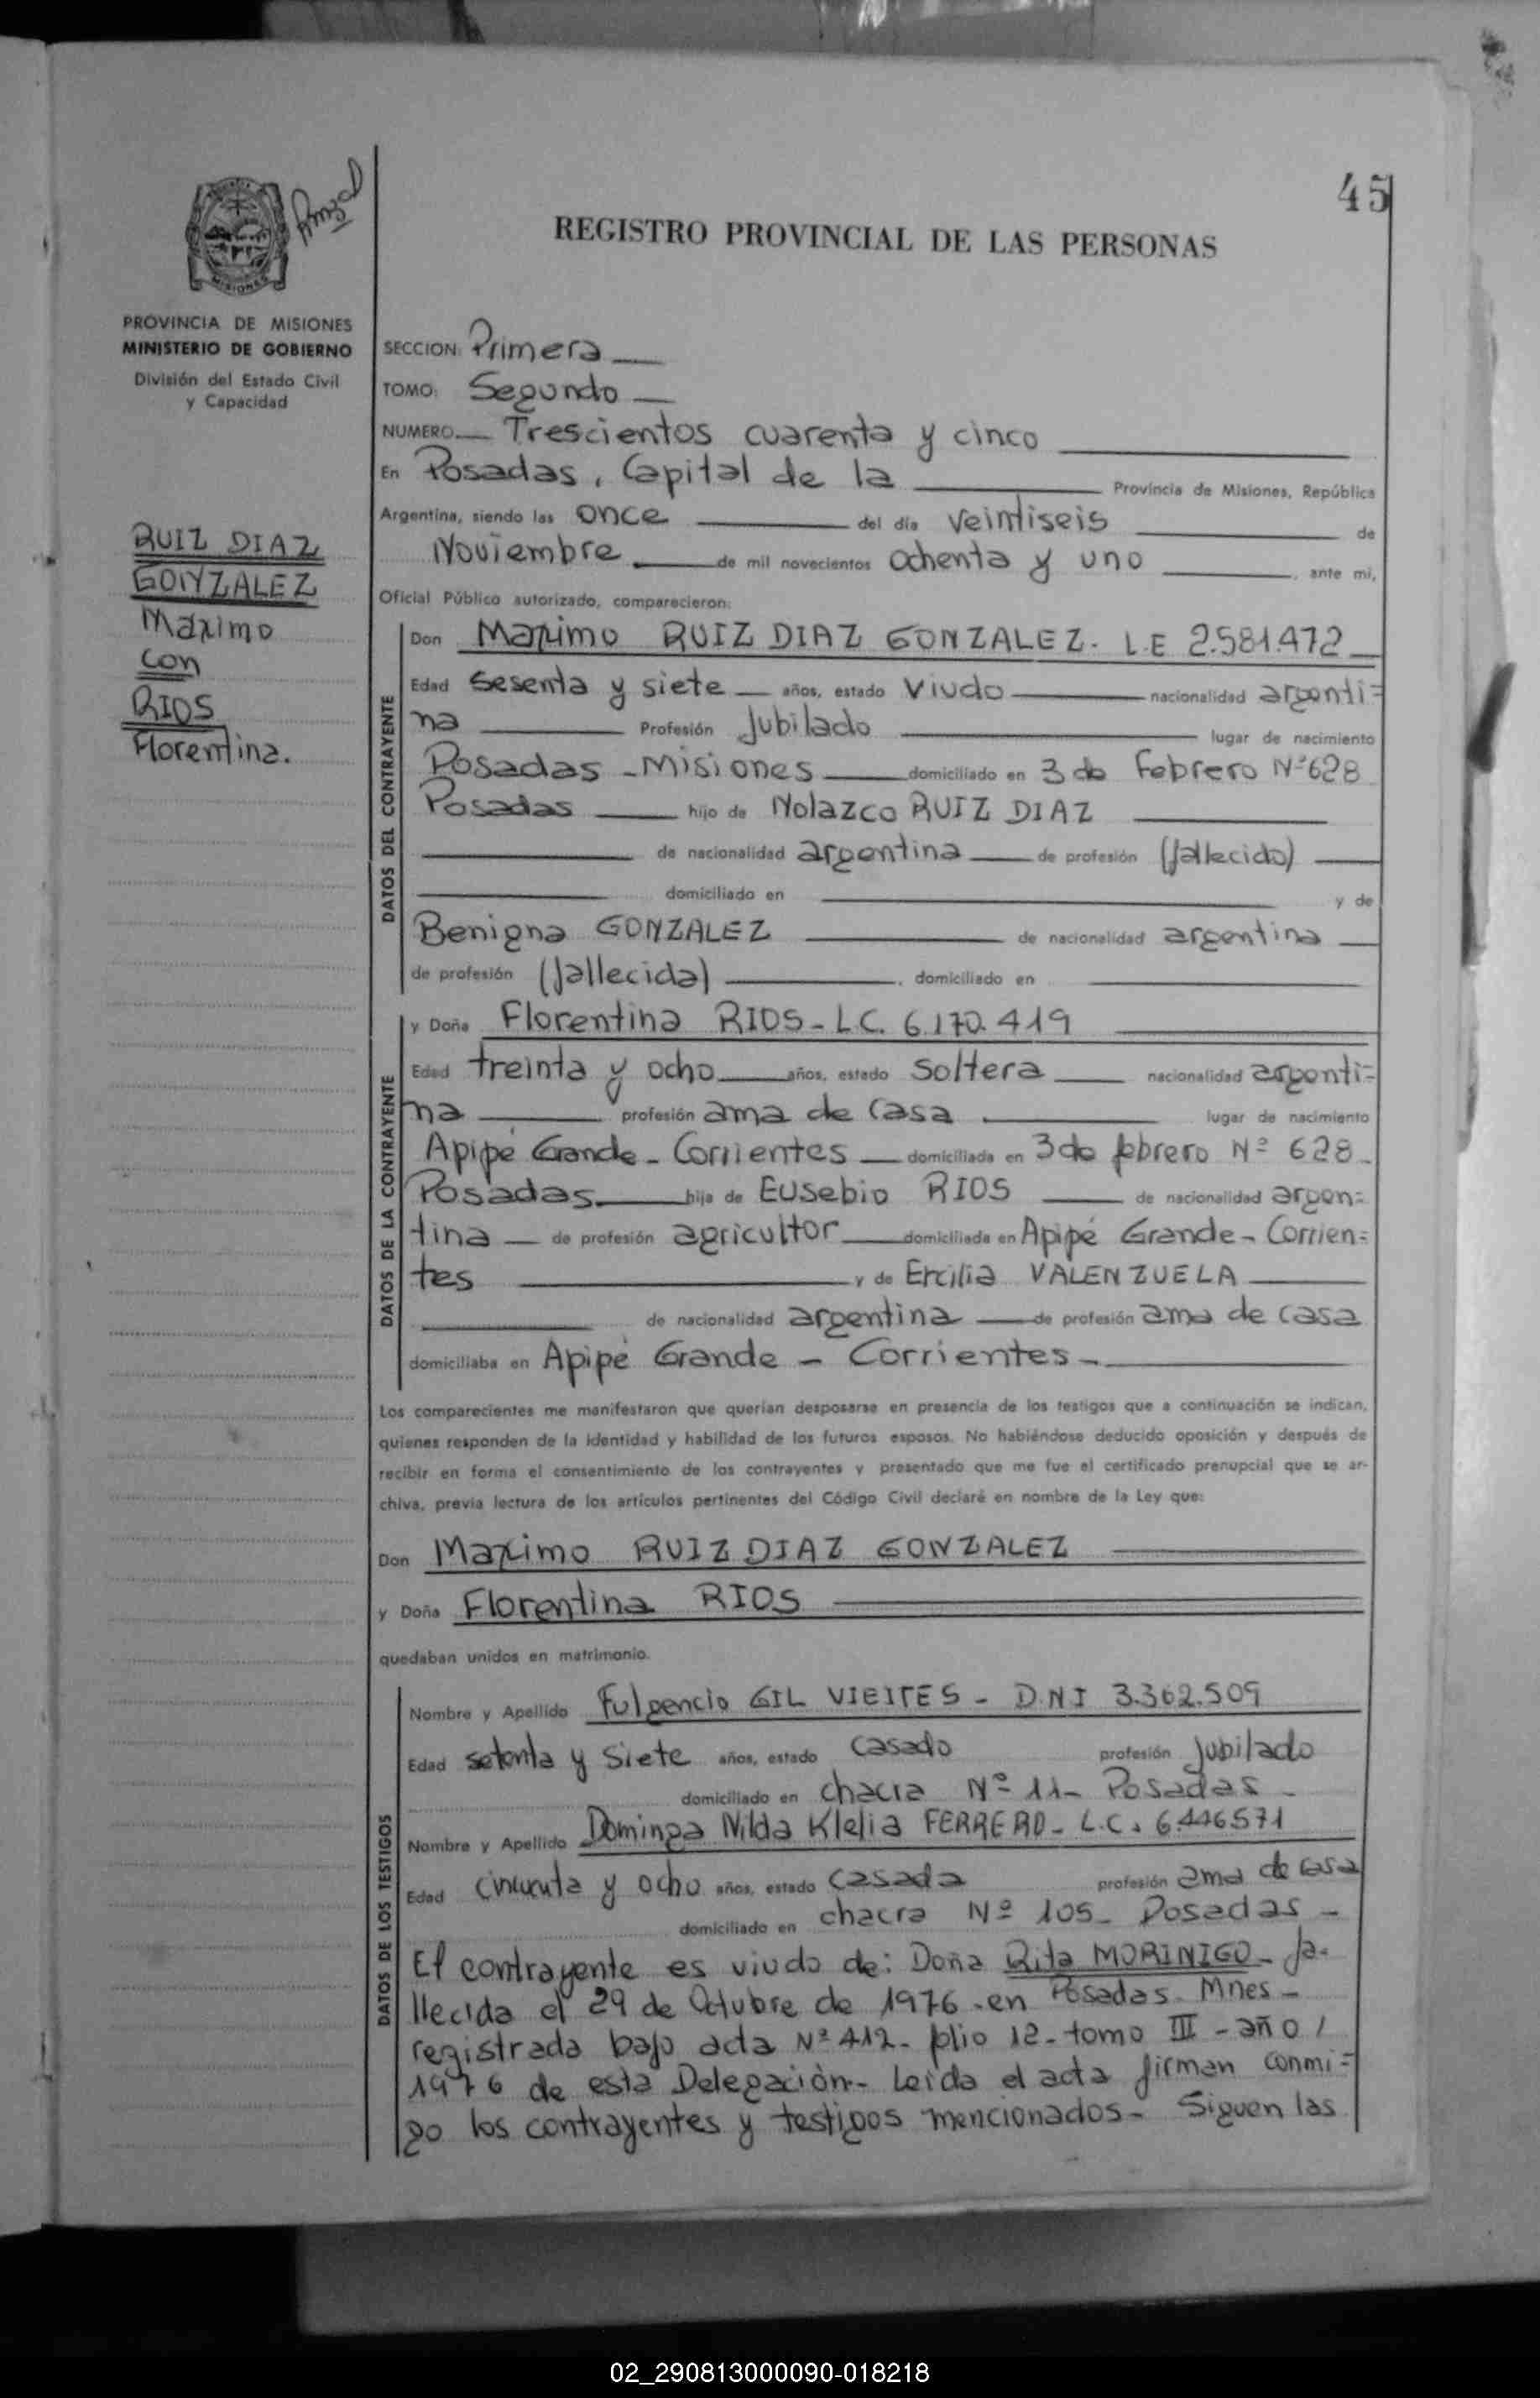 45
REGISTRO PROVINCIAL DE LAS PERSONAS
MISIONES
PROVINCIA DE MISIONES
MINISTERIO DE GOBIERNO
División del Estado Civil
y Capacidad
RUIZ DIAZ
GONZALEZ
Maximo
con
RIOS
Florentina.
SECCION: Primera
TOMO: Segundo
NUMERO Trescientos cuarenta y cinco
En Posadas, Capital de la Provincia de Misiones, República
Argentina, siendo las once del día veintiseis de
Noviembre de mil novecientos ochenta y uno, ante mi,
Oficial Público autorizado, comparecieron:
DATOS DEL CONTRAYENTE
Don Maximo RUIZ DIAZ GONZALEZ. L.E 2.581.472
Edad sesenta y siete años, estado viudo nacionalidad argenti=
na Profesión jubilado lugar de nacimiento
Posadas - Misiones domiciliado en 3 de Febrero Nº 628
Posadas hijo de Nolazco RUIZ DIAZ
de nacionalidad argentina de profesión (fallecido)
domiciliado en y de
Benigna GONZALEZ de nacionalidad argentina
de profesión (fallecida), domiciliado en
DATOS DE LA CONTRAYENTE
y Doña Florentina RIOS - L.C. 6.170.419
Edad treinta y ocho años, estado soltera nacionalidad argenti=
na profesión ama de casa lugar de nacimiento
Apipé Grande - Corrientes domiciliada en 3 de febrero Nº 628
Posadas hija de Eusebio RIOS de nacionalidad argen=
tina de profesión agricultor domiciliada en Apipé Grande - Corrien=
tes y de Ercilia VALENZUELA
de nacionalidad argentina de profesión ama de casa
domiciliaba en Apipé Grande - Corrientes -
Los comparecientes me manifestaron que querian desposarse en presencia de los testigos que a continuación se indican,
quienes responden de la identidad y habilidad de los futuros esposos. No habiéndose deducido oposición y después de
recibir en forma el consentimiento de los contrayentes y presentado que me fue el certificado prenupcial que se ar-
chiva, previa lectura de los artículos pertinentes del Código Civil declaré en nombre de la Ley que:
Don Maximo RUIZ DIAZ GONZALEZ
y Doña Florentina RIOS
quedaban unidos en matrimonio.
DATOS DE LOS TESTIGOS
Nombre y Apellido Fulgencio GIL VIEITES - D.N.I 3.362.509
Edad setenta y siete años, estado casado profesión jubilado
domiciliado en chacra Nº 11- Posadas -
Nombre y Apellido Dominga Nilda Klelia FERRERO - L.C. 6.446.571
Edad cincuenta y ocho años, estado casada profesión ama de casa
domiciliado en chacra Nº 105- Posadas -
El contrayente es viudo de: Doña Rita MORINIGO - fa-
llecida el 29 de Octubre de 1976 - en Posadas. Mnes -
registrada bajo acta Nº 412- folio 12- tomo III - año /
1976 de esta Delegación - Leida el acta firman conmi=
go los contrayentes y testigos mencionados - Siguen las
02_290813000090-018218